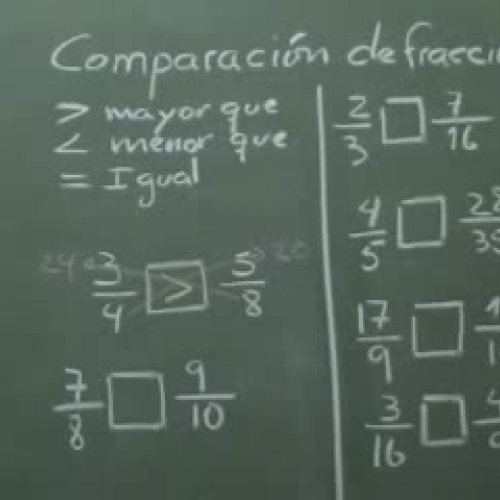 Comparación de fracci
> mayor que
< menor que
= Igual
24 3/4 > 5/8 20
7/8 □ 9/10
2/3 □ 7/16
4/5 □ 28/35
17/9 □
3/16 □